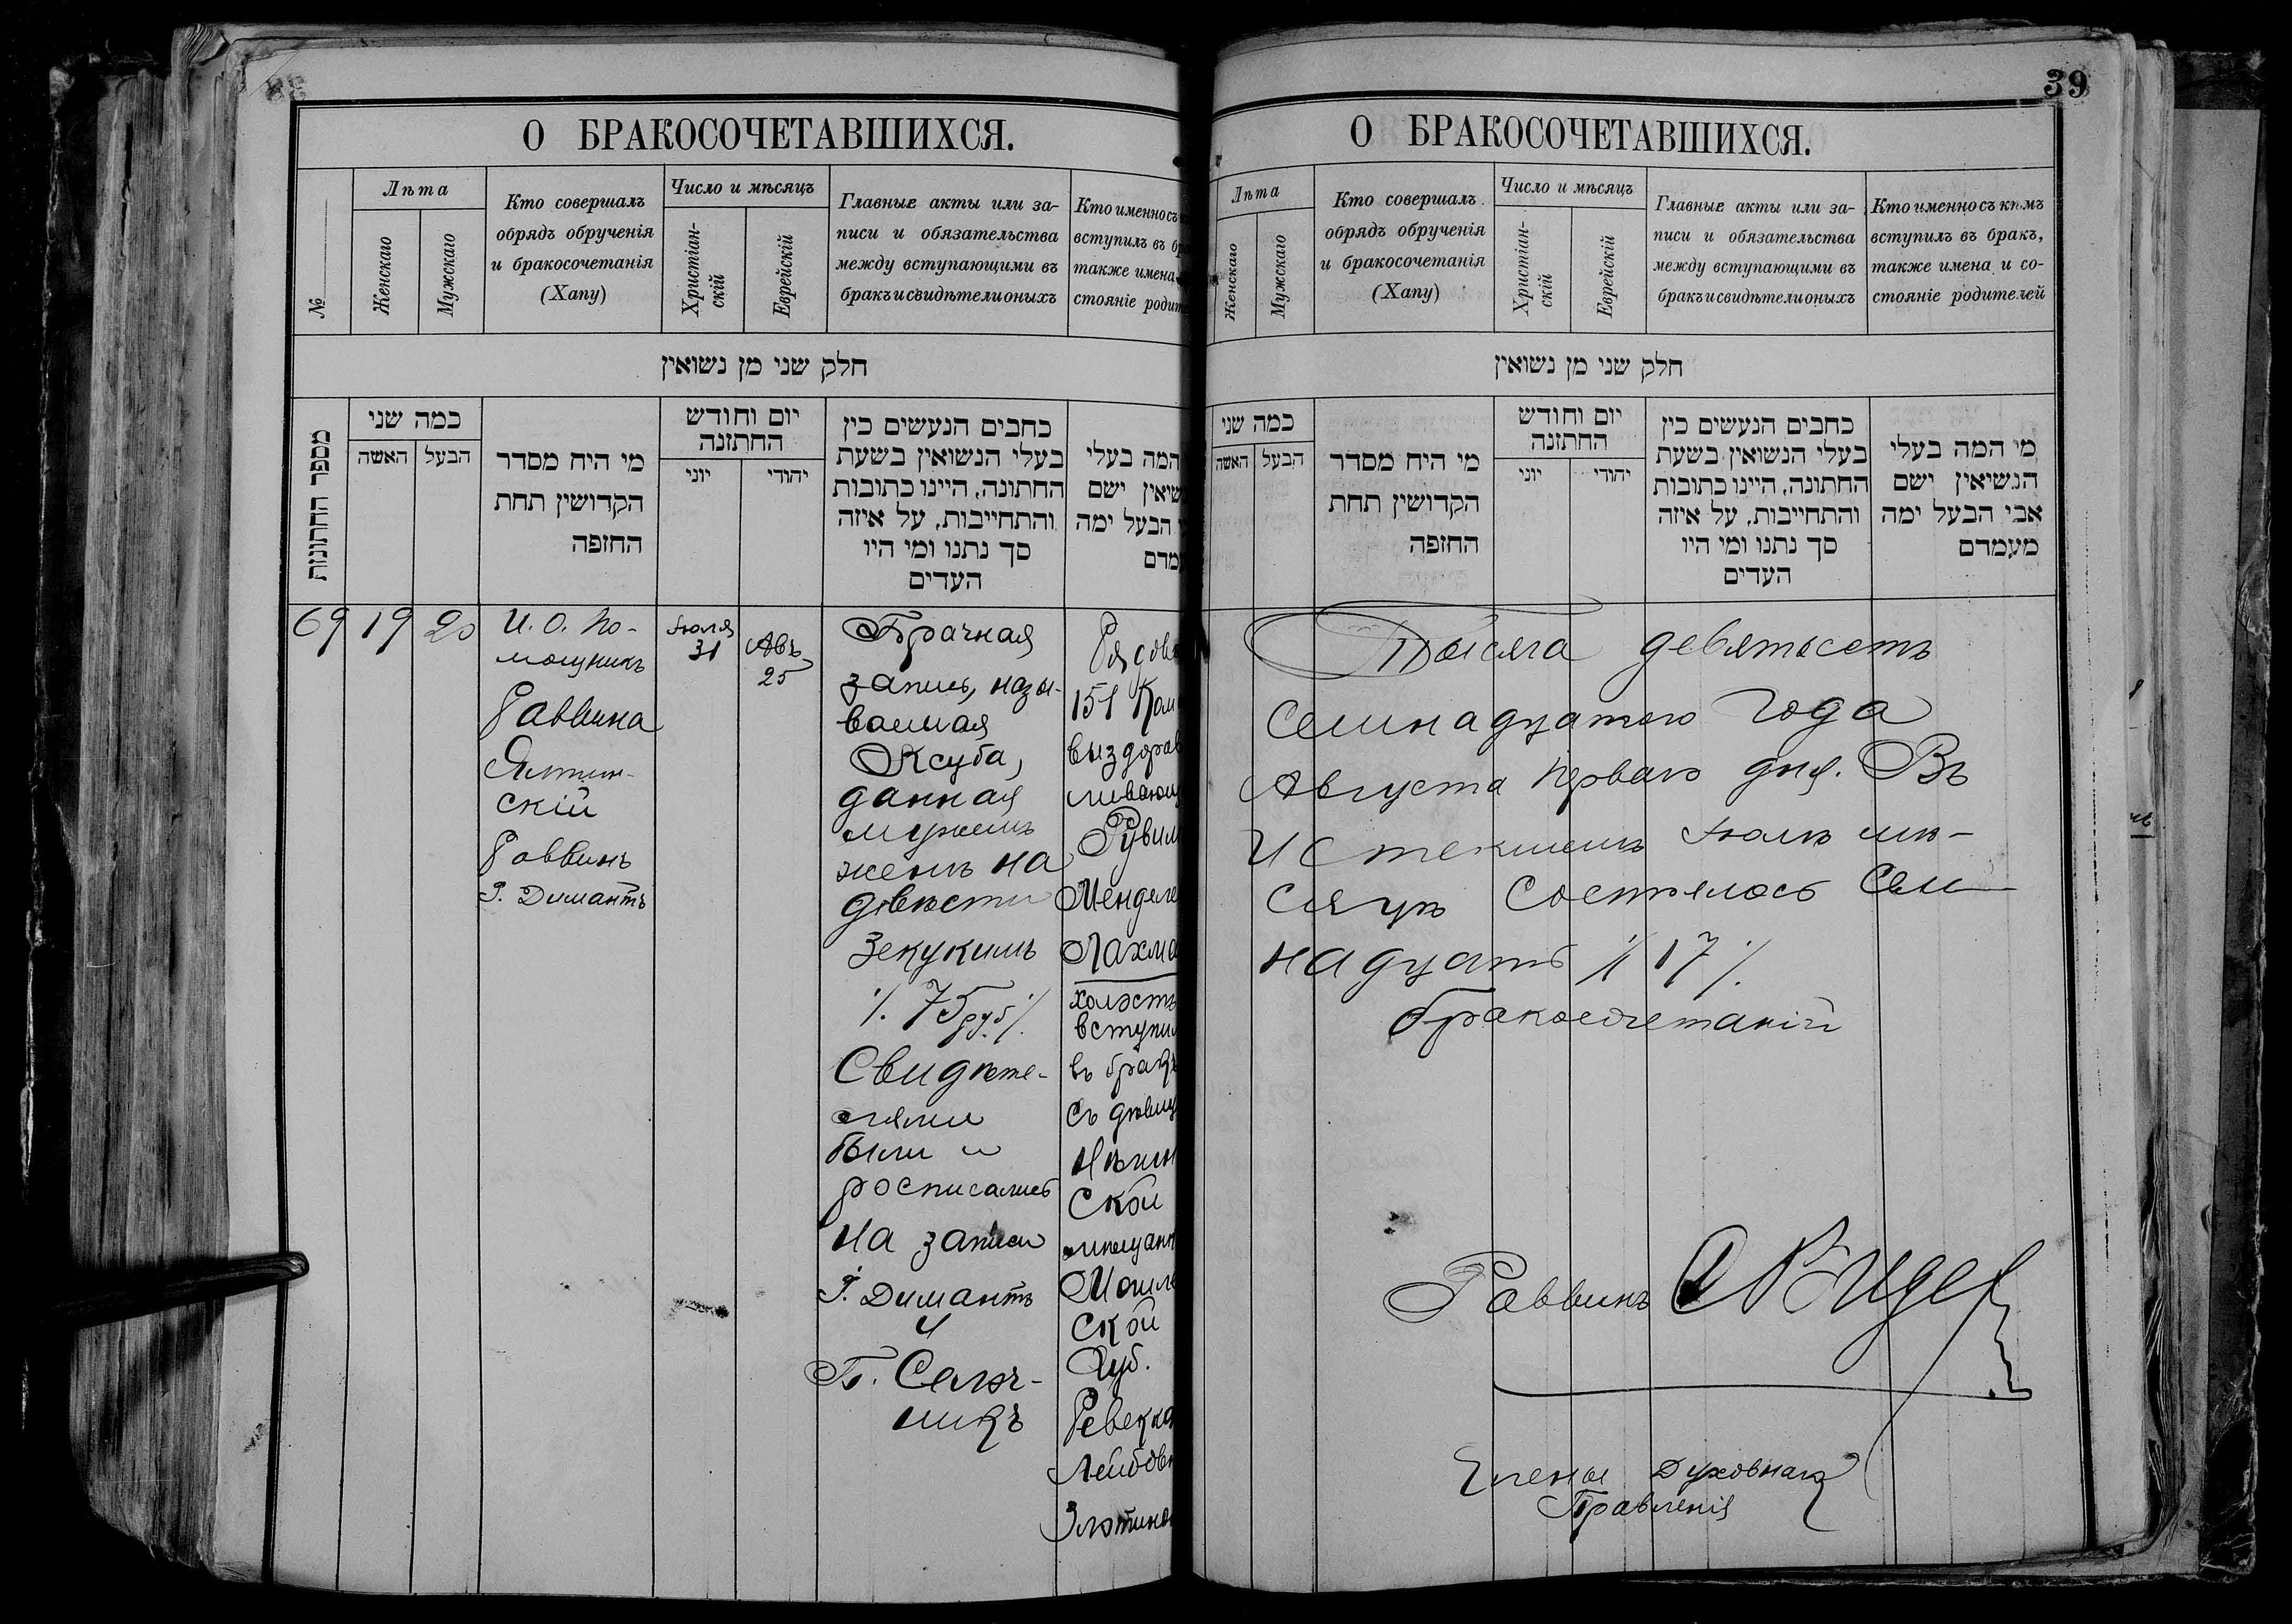 38
О БРАКОСОЧЕТАВШИХСЯ.
№
Лѣта
Женскаго
Мужскаго
Кто совершалъ
обрядъ обрученія
и бракосочетанія
(Хапу)
Число и мѣсяцъ
Христіан-
скій
Еврейскій
Главные акты или за-
писи и обязательства
между вступающими въ
бракъ и свидѣтели оныхъ
Кто именно съ
вступилъ въ бр
также имена
стояніе родит
חלק שני מן נשואין
מספר החתונות
כמה שני
האשה
הבעל
מי היח מסדר
הקדושין תחת
החופה
יום וחודש
החתונה
יוני
יהודי
כתבים הנעשים בין
בעלי הנשואין בשעת
החתונה, היינו כתובות
והתחייבות, על איזה
סך נתנו ומי היו
העדים
המה בעלי
שיאין ישם
הבעל ימה
מדם
69
19
20
И. О. По-
мощникъ
Раввина
Ялтин-
скій
Раввинъ
Г. Димантъ
Іюля
31
Авъ
25
Брачная
запись, назы-
ваемая
Ксуба,
данная
мужемъ
женѣ на
двѣсти
Зекукимъ
/. 75 руб. /.
Свидѣте-
лями
были и
росписались
на записи
Г. Димантъ
и
Б. Сапож-
никъ
Рядово
151 Ком
выздорав
ливающ
Рувим
Менделе
Лахма
холостъ
вступил
въ бракъ
съ дѣвиц
скою
мѣщанк
Могилев
ской
Губ.
Ревекко
Лейбовн
Элтино
39
О БРАКОСОЧЕТАВШИХСЯ.
Лѣта
Женскаго
Мужскаго
Кто совершалъ
обрядъ обрученія
и бракосочетанія
(Хапу)
Число и мѣсяцъ
Христіан-
скій
Еврейскій
Главные акты или за-
писи и обязательства
между вступающими въ
бракъ и свидѣтели оныхъ
Кто именно съ кѣмъ
вступилъ въ бракъ,
также имена и со-
стояніе родителей
חלק שני מן נשואין
כמה שני
האשה
הבעל
מי היח מסדר
הקדושין תחת
החופה
יום וחודש
החתונה
יוני
יהודי
כתבים הנעשים בין
בעלי הנשואין בשעת
החתונה, היינו כתובות
והתחייבות, על איזה
סך נתנו ומי היו
העדים
מי המה בעלי
הנשיאין ישם
אבי הבעל ימה
מעמדם
Тысяча девятьсотъ
семнадцатого года
Августа перваго дня. Въ
истекшемъ Іюлѣ мѣ-
сяцѣ состоялось сем-
надцать /. 17 /.
бракосочетаній
Раввинъ
Члены Духовнаго
Правленія